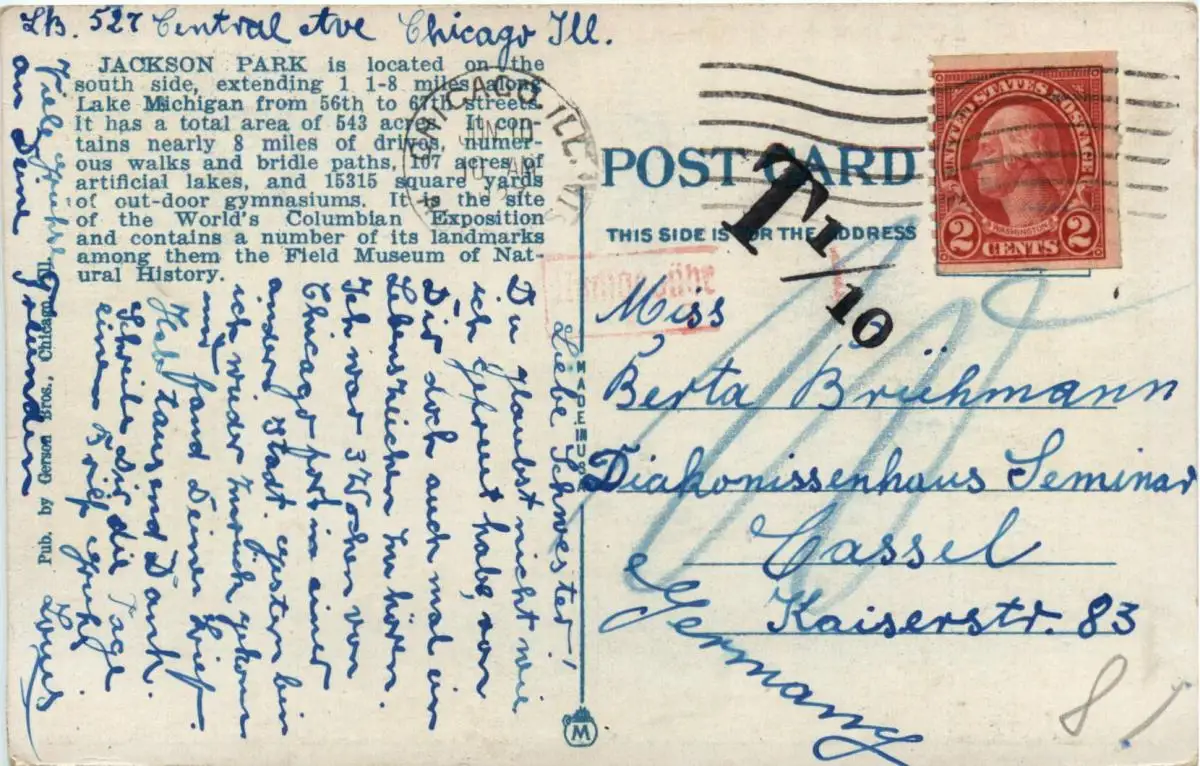 LB. 527 Central Ave Chicago Ill.
JACKSON PARK is located on the
south side, extending 1 1-8 miles along
Lake Michigan from 56th to 67th streets.
It has a total area of 543 acres. It con-
tains nearly 8 miles of drives, numer-
ous walks and bridle paths, 107 acres of
artificial lakes, and 15315 square yards
of out-door gymnasiums. It is the site
of the World's Columbian Exposition
and contains a number of its landmarks
among them the Field Museum of Nat-
ural History.
Liebe Schwester!
Du glaubst nicht wie
ich gefreut habe, von
Dir doch auch mal ein
Lebenszeichen zu hören.
Ich war 3 Wochen von
Chicago fort in einer
andern Stadt gestern bin
ich wieder zurück gekom
und fand Deinen Brief.
Hab tausend Dank.
Schreibe Dir die Tage
einen Brief
Louis
Viele grüsse
an Deine Freundin
Pub. by Gerson Bros., Chicago, Ill.
MADE IN USA
M
POST CARD
THIS SIDE IS FOR THE ADDRESS
CHICAGO, ILL.
JUN 10
AM
T 1/10
UNITED STATES POSTAGE
WASHINGTON
2 CENTS 2
Miss
Berta Brühmann
Diakonissenhaus Seminar
Cassel
Kaiserstr. 83
Germany
8